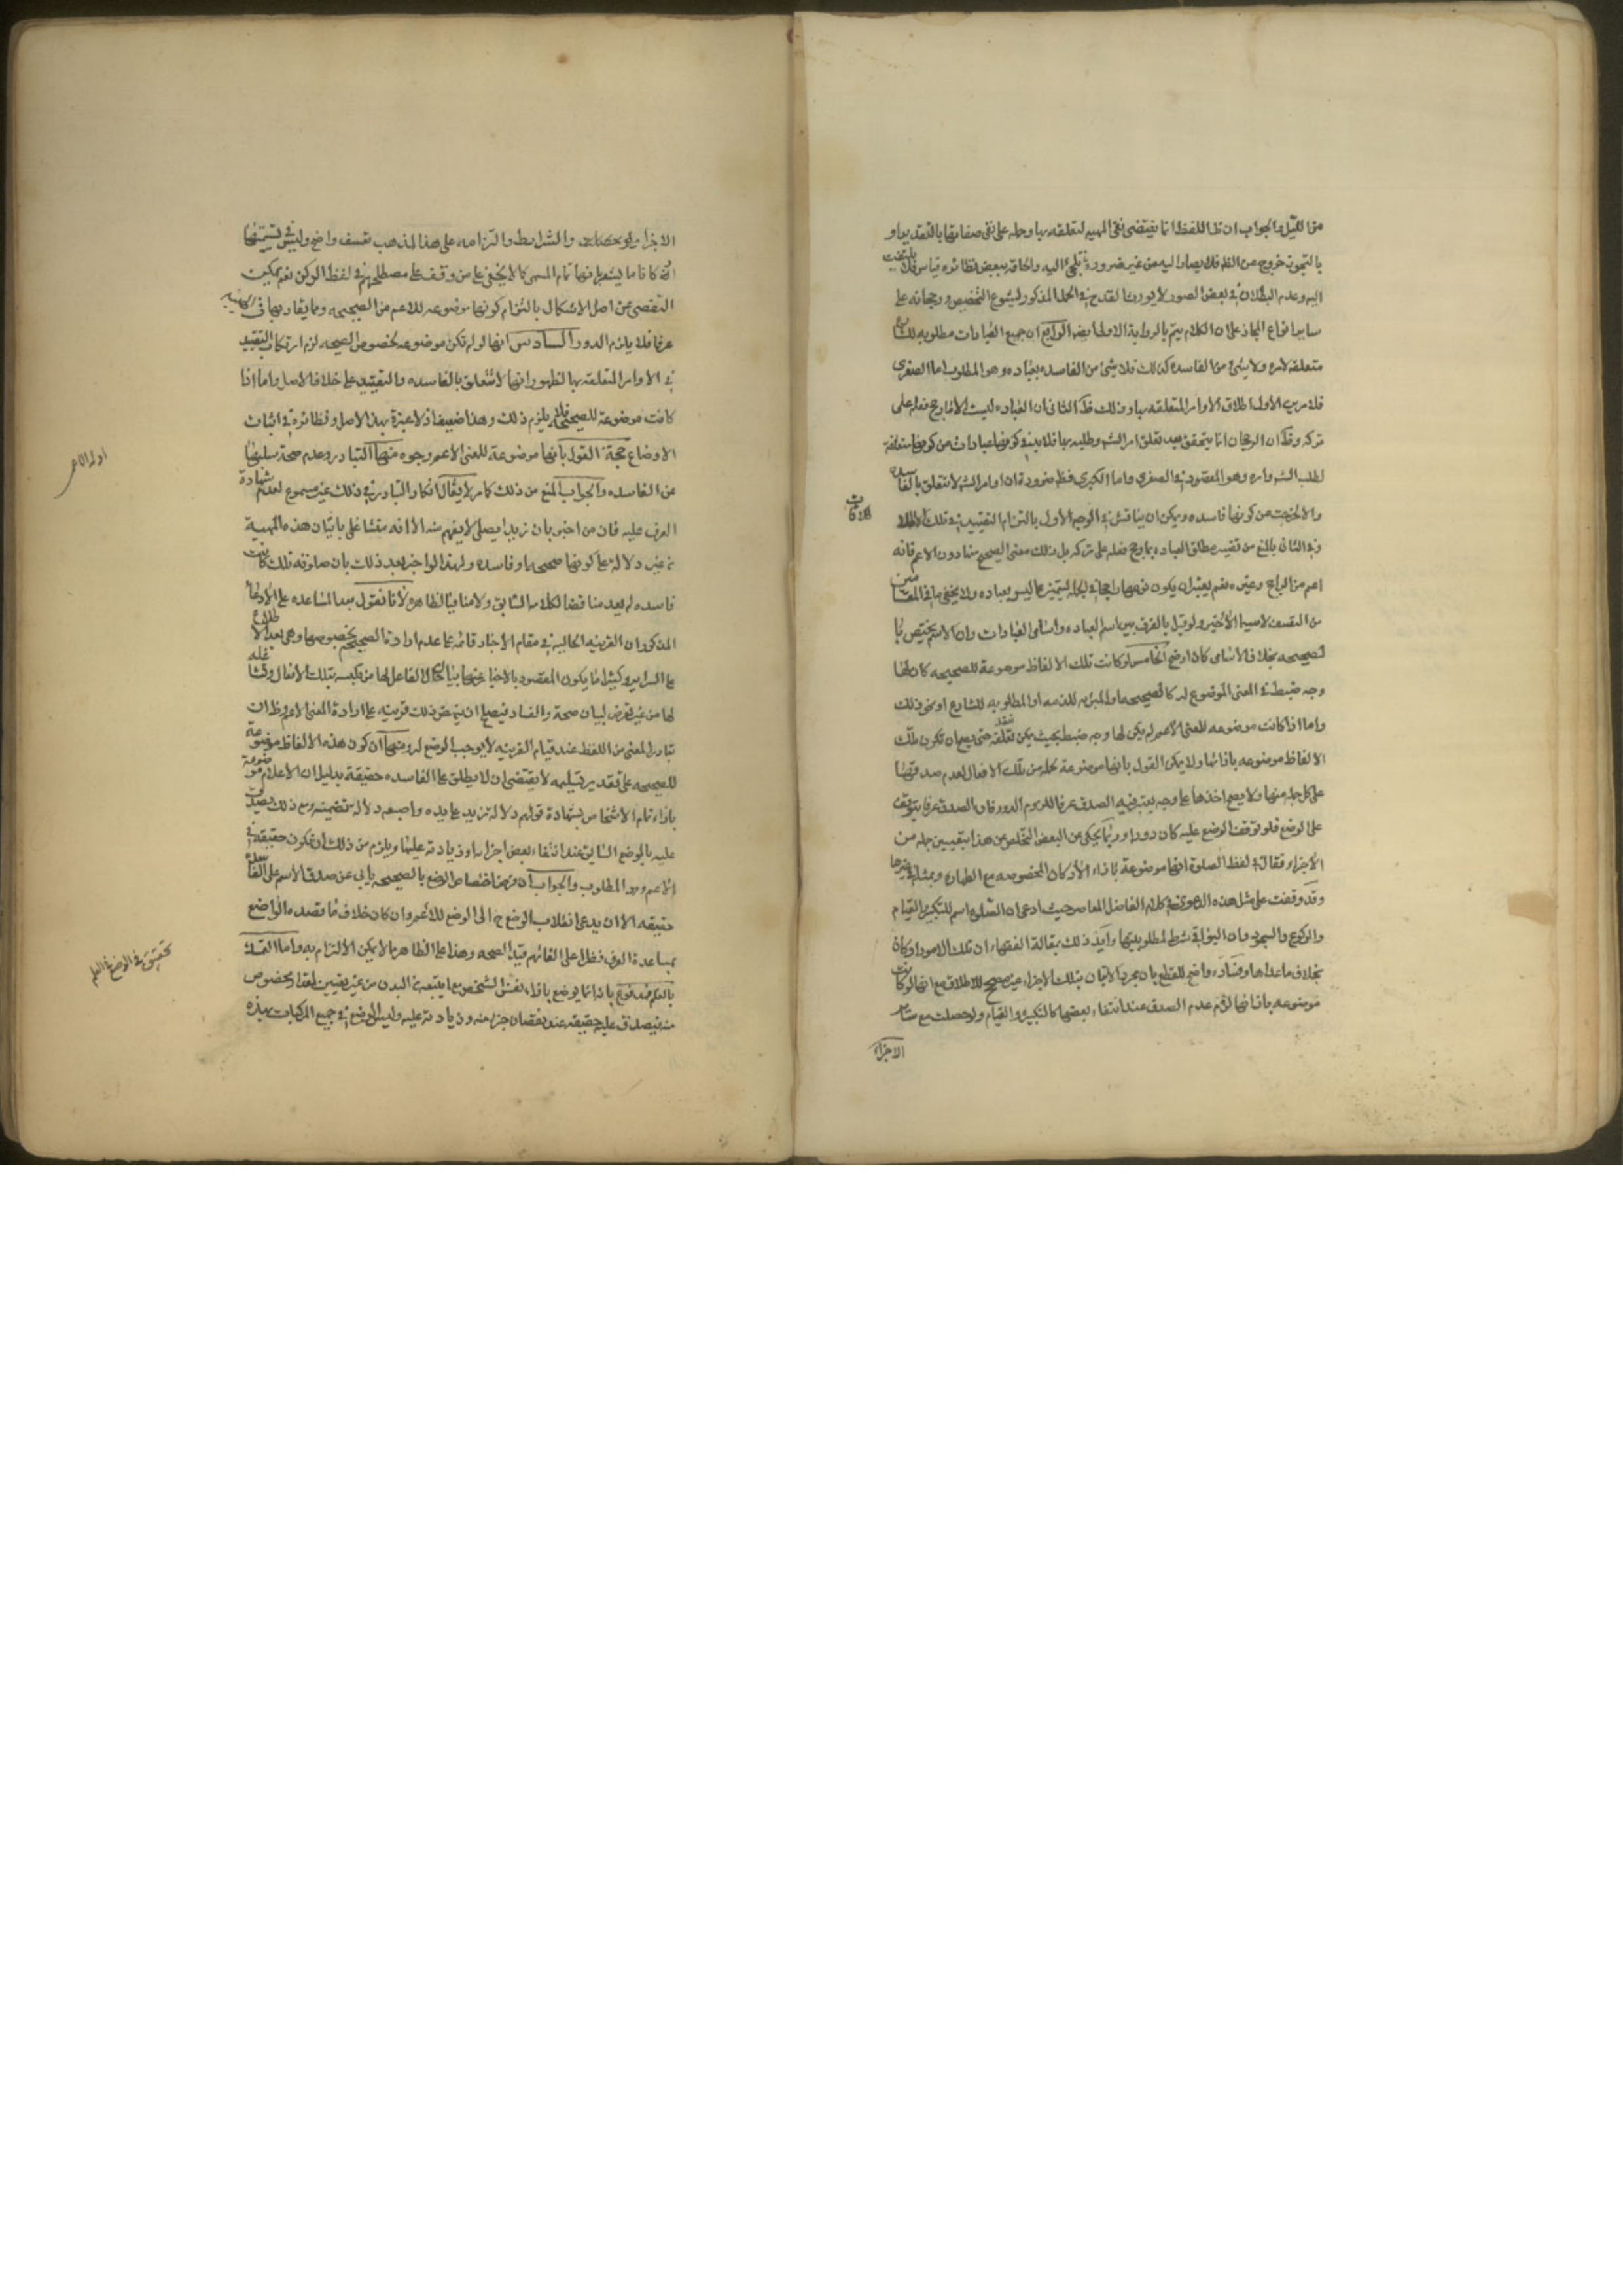 من الليل والجواب ان ظ اللفظ انما يقتضى نفى المهيه لتعلقه بها وحمله على نفى صفاتها بالتقدير او
بالتجوز خروج عن الظ فلا يصار اليه من غير ضرورة تلجئ اليه والحاقه ببعض نظائره قياس فلا يلتفت
اليه وعدم البطلان فى بعض الصور لا يورث القدح فى الحمل المذكور لشيوع التخصيص ورجحانه على
ساير انواع المجاز على ان الكلام يتم بالرواية الاولى ايض الرابع ان جميع العبادات مطلوبه للشارع
متعلقه لامره ولا شئ من الفاسده كذلك فلا شئ من الفاسده بعباده وهو المطلوب اما الصغرى
فلامرين الاول اطلاق الاوامر المتعلقه بها وذلك ظ الثانى ان العباده ليست الا ما رجح فعله على
تركه وظ ان الرجحان انما يتحقق بعد تعلق امر الشه وطلبه بها فلا بد فى كونها عبادات من كونها متعلقة
لطلب الشه وامره وهو المقصود فى الصغرى واما الكبرى فظ ضرورة ان اوامر الشه لا تتعلق بالفاسده
والا لخرجت عن كونها فاسده ويمكن ان يناقش فى الوجه الاول بالتزام التقييد فى تلك الاطلاقات
وفى الثانى بالمنع من تفسير مطلق العباده بما رجح فعله على تركه بل ذلك معنى الصحيح منها دون الاعم فانه
اعم من الراجح وغيره نعم يعتبر ان يكون نوعها راجحا فى الجمله ليتميز عما ليس بعباده ولا يخفى ما فى المقامين
من التعسف لا سيما الاخير ولو قيل بالفرق بين اسم العباده واسامى العبادات وان الاسم يختص با
لصحيحه بخلاف الاسامى كان اوضح الخامس لو كانت تلك الالفاظ موضوعة للصحيحه كان لها
وجه ضبط فى المعنى الموضوع له كالصحيحه او المبرئه للذمه او المطلوبه للشارع او نحو ذلك
واما اذا كانت موضوعه للمعنى الاعم لم يكن لها وجه ضبط بحيث يمكن تعقله حتى يصح ان تكون تلك
الالفاظ موضوعه بازائها ولا يمكن القول بانها موضوعة لجملة من تلك الافعال لعدم صدقها
على كل جمله منها ولا يصح اخذها على وجه يعتبر فيه الصدق عرفا للزوم الدور فان الصدق عرفا يتوقف
على الوضع فلو توقف الوضع عليه كان دورا وربما يحكى عن البعض التخلص عن هذا بتعيين جمله من
الاجزاء فقال فى لفظ الصلوة انها موضوعة بازاء الاركان المخصوصه مع الطهارة وبمثله فى غيرها
وقد وقفت على مثل هذه الدعوى فى كلام الفاضل المعاصر حيث ادعى ان الصلوة اسم للتكبير والقيام
والركوع والسجود وان البواقى شرط لمطلوبيتها وايد ذلك بمقالة الفقهاء ان تلك الامور اركان
بخلاف ما عداها وفساده واضح للقطع بان مجرد الاتيان بتلك الاجزاء غير مصحح للاطلاق مع انها لو كانت
موضوعه بازائها لزم عدم الصدق عند انتفاء بعضها كالتكبير والقيام ولو حصلت مع ساير
الاجزاء
الاجزاء والشرايط والتزامه على هذا المذهب تعسف واضح وليس فى تسميتها
اركانا ما يشعر بانها تمام المسمى كما لا يخفى على من وقف على مصطلحهم فى لفظ الركن نعم يمكن
التفصى عن اصل الاشكال بالتزام كونها موضوعه للاعم من الصحيحه وما يقاربها فى الهيئه
عرفا فلا يلزم الدور السادس انها لو لم تكن موضوعه لخصوص الصحيحه لزم ارتكاب التقييد
فى الاوامر المتعلقه بها لظهور انها لا تتعلق بالفاسده والتقييد على خلاف الاصل واما اذا
كانت موضوعة للصحيحه فلا يلزم ذلك وهذا ضعيف اذ لا عبرة بهذا الاصل ونظائره فى اثبات
الاوضاع حجة القول بانها موضوعة للمعنى الاعم وجوه منها التبادر وعدم صحة سلبها
عن الفاسده والجواب المنع من ذلك كما مر لا يقال انكار التبادر فى ذلك غير مسموع لعدم شهادة
العرف عليه فان من اخبر بان زيدا يصلى لا يفهم منه الا انه متشاغل باتيان هذه المهية
من غير دلالة على كونها صحيحه او فاسده ولهذا لو اخبر بعد ذلك بان صلوته تلك كانت
فاسده لم يعد مناقضا لكلامه السابق ولا منافيا لظاهره لانا نقول بعد المساعده على الادعاء
المذكور ان القرينه الحاليه فى مقام الاخبار قائمه على عدم ارادة الصحيح بخصوصها وهى بعد الاطلاع
على السراير وكثيرا ما يكون المقصود بالاخبار عنها بيان حال الفاعل لها من تلبسه بتلك الافعال وتشاغله
لها من غير تعرض لبيان صحة والفساد فيصلح ان ينهض ذلك قرينه على ارادة المعنى الاعم وظ ان
تبادر المعنى من اللفظ عند قيام القرينه لا يوجب الوضع له ومنها ان كون هذه الالفاظ موضوعة
للصحيحه على تقدير تسليمه لا يقتضى ان لا يطلق على الفاسده حقيقة بدليل ان الاعلام موضوعة
بازاء تمام الاشخاص بشهادة قولهم دلالة زيد على يده واصبعه دلالة تضمنيه ومع ذلك يصدق
عليه بالوضع السابق عند انتفاء بعض اجزائه او زيادته عليها ويلزم من ذلك ان تكون حقيقة فى
الاعم وهو المطلوب والجواب ان فرض اختصاص الوضع بالصحيحه يابى عن صدق الاسم على الفاسده
حقيقه الا ان يدعى انقلاب الوضع ح الى الوضع للاعم وان كان خلاف ما قصده الواضع
بمساعدة العرف نظرا على الغائهم قيد الصحه وهذا على الظاهر مما لا يمكن الالتزام به واما التمسك
بالعلم فمدفوع بانه انما يوضع بازاء نفس الشخص مع ما يتبعه من البدن من غير تعيين لمقدار مخصوص
منه فيصدق عليه حقيقه عند نقصان جزء منه وزيادته عليه وليس الوضع فى جميع المركبات بهذه
ادلة الاعم
تحقيق فى الوضع فى العلم